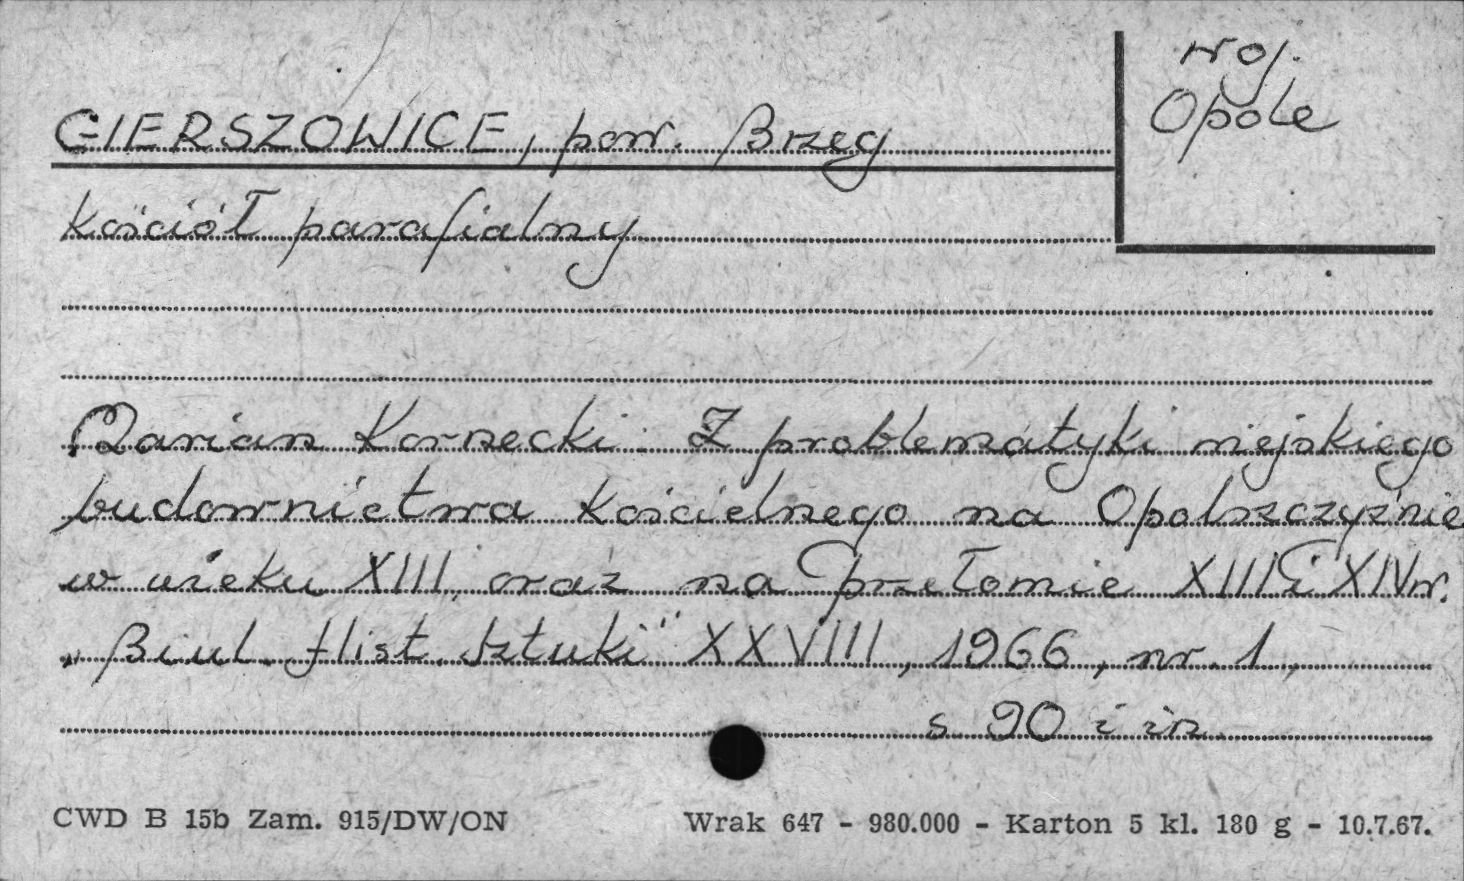 woj.
Opole
GIERSZOWICE, pow. Brzeg
Kościół parafialny
Marian Kornecki: Z problematyki wiejskiego
budownictwa kościelnego na Opolszczyźnie
w wieku XIII oraz na przełomie XIII i XIV w.
„Biul. Hist. Sztuki" XXVIII, 1966, nr. 1,
s 90 i in.
CWD B 15b Zam. 915/DW/ON Wrak 647 - 980.000 - Karton 5 kl. 180 g - 10.7.67.